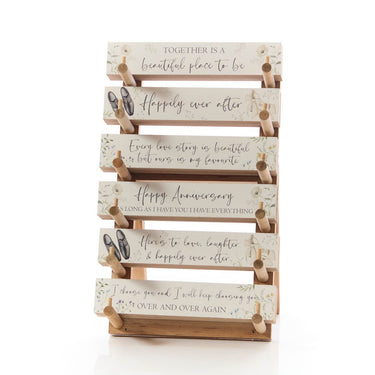 TOGETHER IS A
beautiful place to be
Happily ever after
Every love story is beautiful
but ours is my favourite
Happy Anniversary
AS LONG AS I HAVE YOU I HAVE EVERYTHING
Here's to love, laughter
& happily ever after
I choose you and I will keep choosing you
OVER AND OVER AGAIN